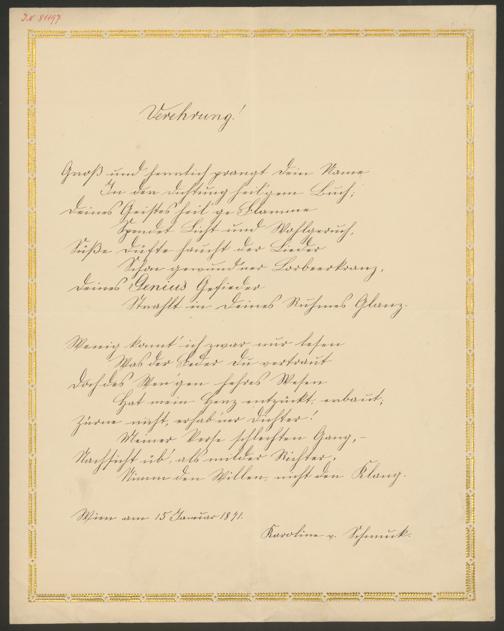 J.N 81197
Verehrung!
Groß und herrlich prangt dein Name
In der Dichtung heil'gem Buch;
Deines Geistes heil'ge Flamme
Spendet Licht und Wohlgeruch.
Süße Düfte haucht der Lieder
Schön gewund'ner Lorbeerkranz,
Deines Genius Gefieder
Strahlt in Deines Ruhmes Glanz.
Wenig konnt' ich zwar nur lesen
Was der Feder Du vertraut
Doch des Wen'gen hehres Wesen
Hat mein Herz entzückt, erbaut;
Zürne nicht, erhab'ner Dichter!
Meiner Verse schlechten Gang,-
Nachsicht üb', als milder Richter,
Nimm den Willen, nicht den Klang.
Wien am 15 Januar 1891.
Karoline v.